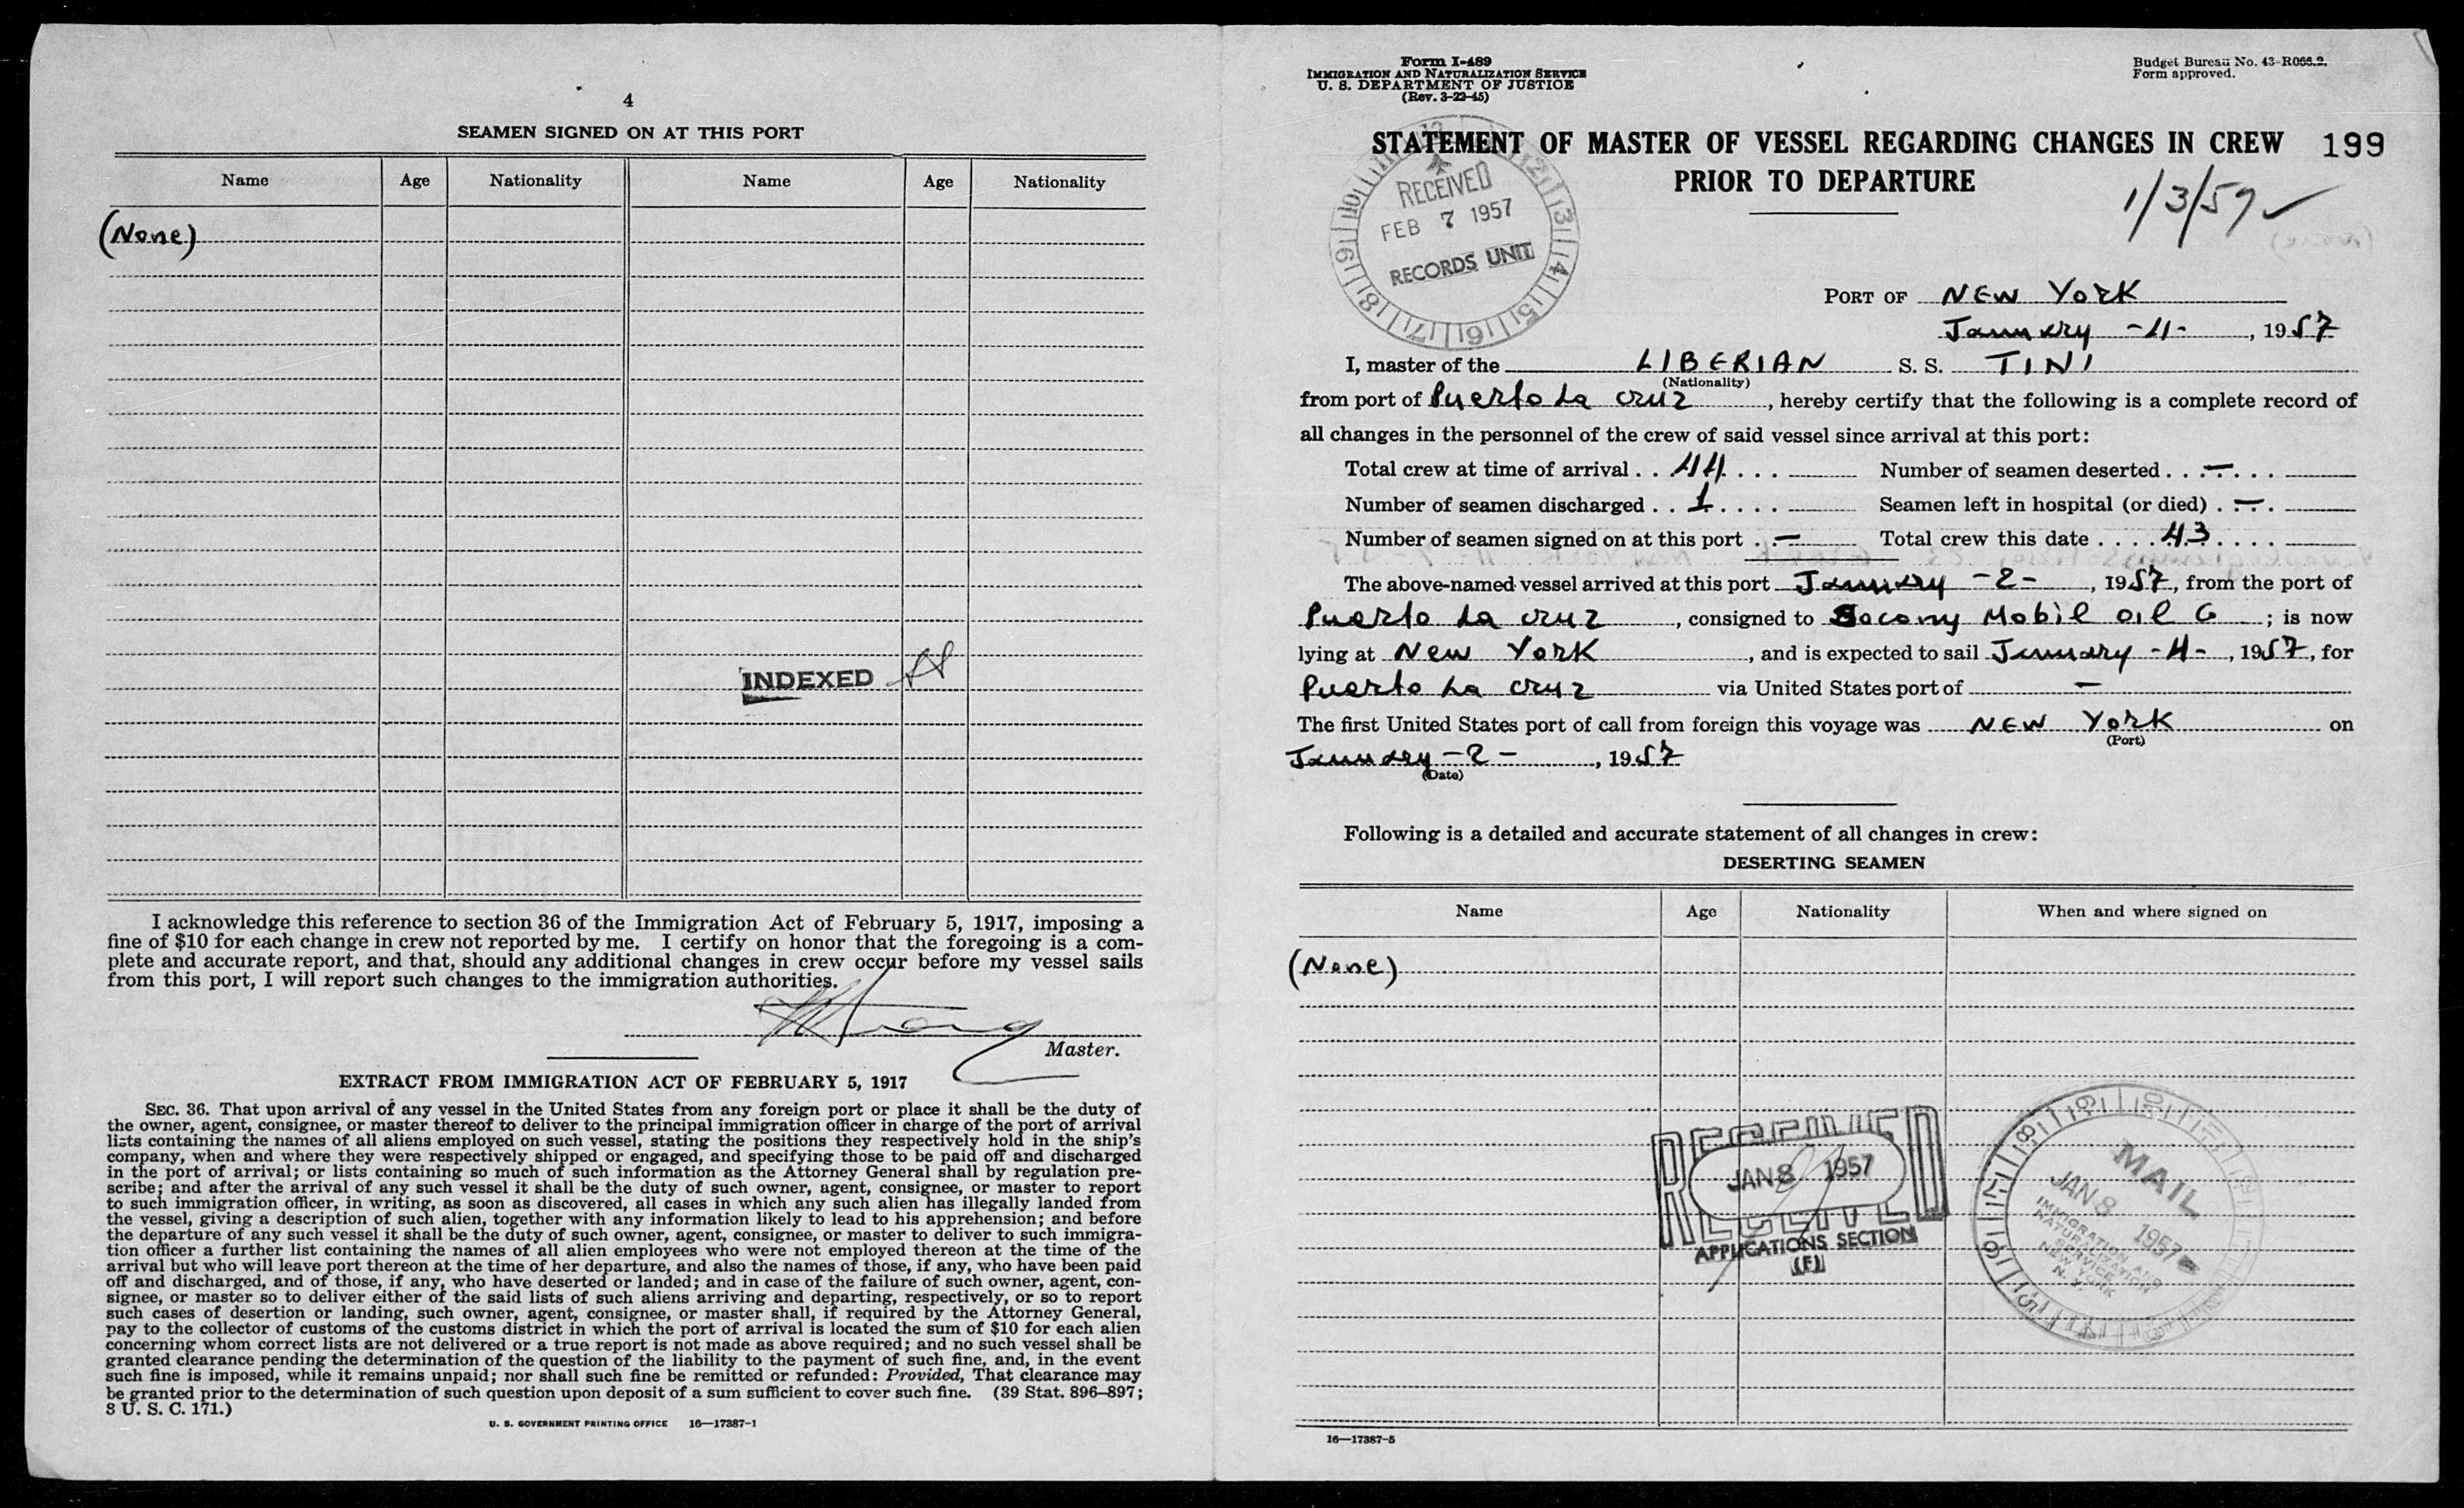 4
SEAMEN SIGNED ON AT THIS PORT
Name Age Nationality Name Age Nationality
(None)
INDEXED
I acknowledge this reference to section 36 of the Immigration Act of February 5, 1917, imposing a
fine of $10 for each change in crew not reported by me. I certify on honor that the foregoing is a com-
plete and accurate report, and that, should any additional changes in crew occur before my vessel sails
from this port, I will report such changes to the immigration authorities.
Master.
EXTRACT FROM IMMIGRATION ACT OF FEBRUARY 5, 1917
SEC. 36. That upon arrival of any vessel in the United States from any foreign port or place it shall be the duty of
the owner, agent, consignee, or master thereof to deliver to the principal immigration officer in charge of the port of arrival
lists containing the names of all aliens employed on such vessel, stating the positions they respectively hold in the ship's
company, when and where they were respectively shipped or engaged, and specifying those to be paid off and discharged
in the port of arrival; or lists containing so much of such information as the Attorney General shall by regulation pre-
scribe; and after the arrival of any such vessel it shall be the duty of such owner, agent, consignee, or master to report
to such immigration officer, in writing, as soon as discovered, all cases in which any such alien has illegally landed from
the vessel, giving a description of such alien, together with any information likely to lead to his apprehension; and before
the departure of any such vessel it shall be the duty of such owner, agent, consignee, or master to deliver to such immigra-
tion officer a further list containing the names of all alien employees who were not employed thereon at the time of the
arrival but who will leave port thereon at the time of her departure, and also the names of those, if any, who have been paid
off and discharged, and of those, if any, who have deserted or landed; and in case of the failure of such owner, agent, con-
signee, or master so to deliver either of the said lists of such aliens arriving and departing, respectively, or so to report
such cases of desertion or landing, such owner, agent, consignee, or master shall, if required by the Attorney General,
pay to the collector of customs of the customs district in which the port of arrival is located the sum of $10 for each alien
concerning whom correct lists are not delivered or a true report is not made as above required; and no such vessel shall be
granted clearance pending the determination of the question of the liability to the payment of such fine, and, in the event
such fine is imposed, while it remains unpaid; nor shall such fine be remitted or refunded: Provided, That clearance may
be granted prior to the determination of such question upon deposit of a sum sufficient to cover such fine. (39 Stat. 896–897;
8 U. S. C. 171.)
U. S. GOVERNMENT PRINTING OFFICE 16—17387-1
Form I-489
IMMIGRATION AND NATURALIZATION SERVICE
U. S. DEPARTMENT OF JUSTICE
(Rev. 3-22-45)
Budget Bureau No. 43-R066.2.
Form approved.
STATEMENT OF MASTER OF VESSEL REGARDING CHANGES IN CREW 199
PRIOR TO DEPARTURE
1/3/57
RECEIVED
FEB 7 1957
RECORDS UNIT
PORT OF NEW YORK
January -4-, 1957
I, master of the LIBERIAN S. S. TINI
(Nationality)
from port of Puerto La cruz, hereby certify that the following is a complete record of
all changes in the personnel of the crew of said vessel since arrival at this port:
Total crew at time of arrival . . 44 . . . . Number of seamen deserted . . . — . . .
Number of seamen discharged . . 1 . . . . Seamen left in hospital (or died) . — .
Number of seamen signed on at this port . . — Total crew this date . . . . 43 . . . .
The above-named vessel arrived at this port January -2-, 1957, from the port of
Puerto La cruz, consigned to Socony Mobil oil Co; is now
lying at New York, and is expected to sail January -4-, 1957, for
Puerto La cruz via United States port of —
The first United States port of call from foreign this voyage was NEW YORK on
(Port)
January -2-, 1957
(Date)
Following is a detailed and accurate statement of all changes in crew:
DESERTING SEAMEN
Name Age Nationality When and where signed on
(None)
RECEIVED
JAN 8 1957
APPLICATIONS SECTION
(F)
MAIL
JAN 8 1957
IMMIGRATION AND
NATURALIZATION
SERVICE
NEW YORK
N. Y.
16—17387-5